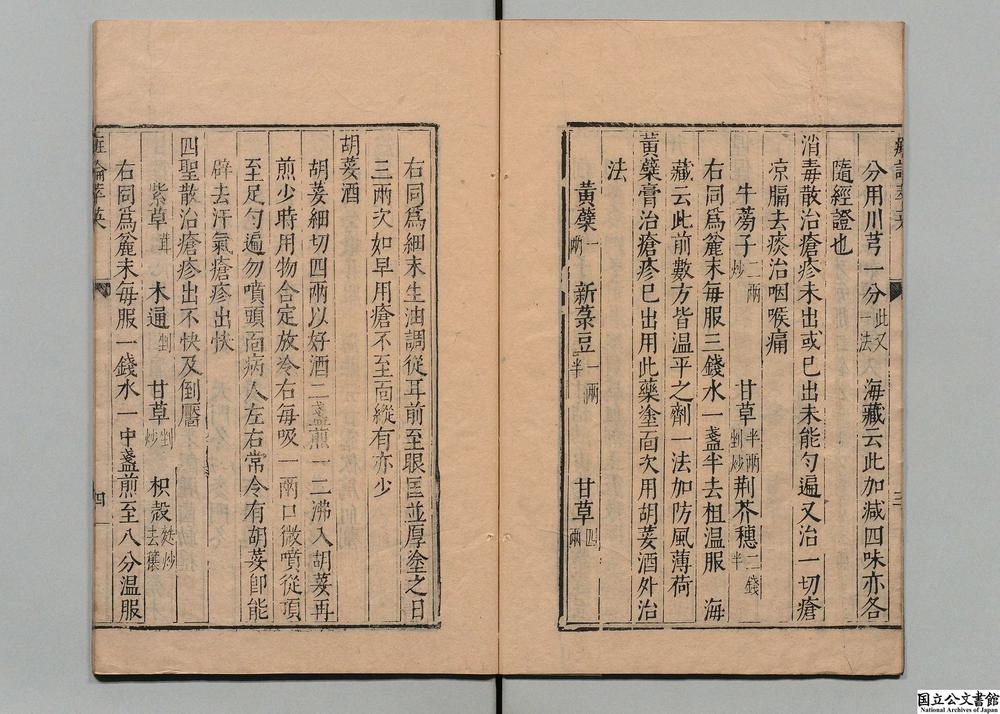 分用川芎一分此又一法 海藏云此加減四味亦各
隨經證也
消毒散治瘡疹未出或已出未能勻遍又治一切瘡
凉膈去痰治咽喉痛
牛蒡子二兩炒 甘草半兩剉炒 荆芥穗二錢半
右同爲麄末每服三錢水一盞半去柤温服 海
藏云此前數方皆温平之劑一法加防風薄荷
黄蘗膏治瘡疹已出用此藥塗面次用胡荽酒外治
法
黄蘗一兩 新菉豆一兩半 甘草四兩
右同爲細末生油調從耳前至眼匡並厚塗之日
三兩次如早用瘡不至面縱有亦少
胡荽酒
胡荽細切四兩以好酒二盞煎一二沸入胡荽再
煎少時用物合定放冷右每吸一兩口微噴從項
至足勻遍勿噴頭面病人左右常令有胡荽卽能
辟去汗氣瘡疹出快
四聖散治瘡疹出不快及倒靨
紫草茸 木通剉 甘草剉炒 枳殼麩炒去穰
右同爲麄末每服一錢水一中盞煎至八分温服
癍論萃英
四
三
国立公文書館
National Archives of Japan